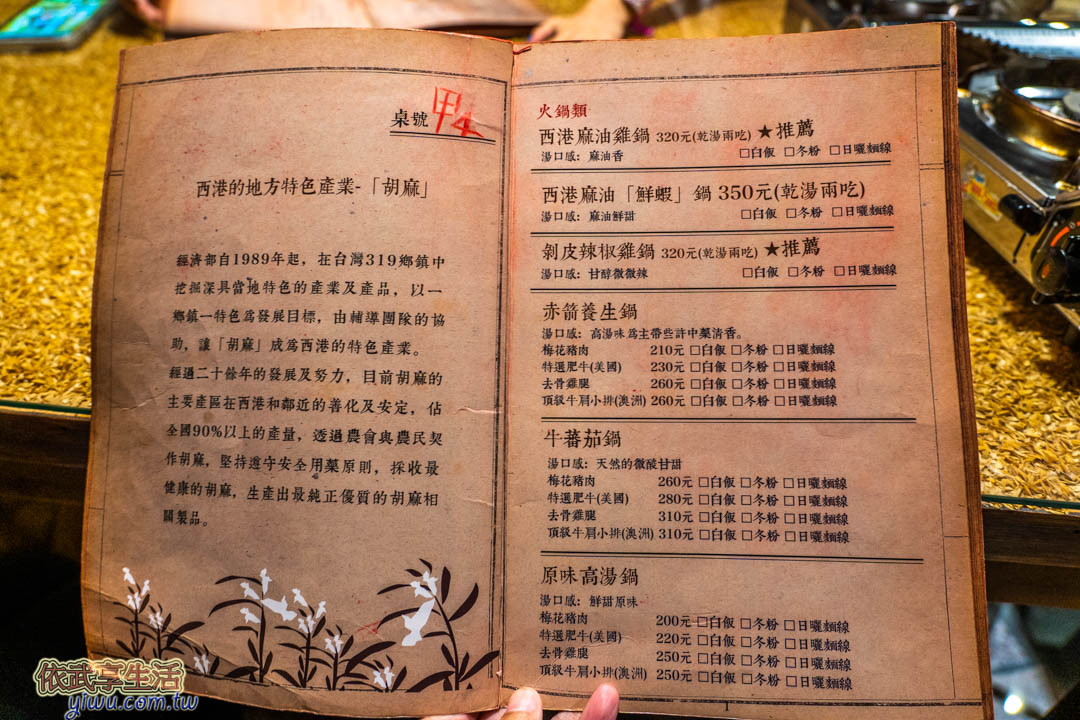 桌號 甲4
西港的地方特色產業-「胡麻」
經濟部自1989年起，在台灣319鄉鎮中
挖掘深具當地特色的產業及產品，以一
鄉鎮一特色為發展目標，由輔導團隊的協
助，讓「胡麻」成為西港的特色產業。
經過二十餘年的發展及努力，目前胡麻的
主要產區在西港和鄰近的善化及安定，佔
全國90%以上的產量，透過農會與農民契
作胡麻，堅持遵守安全用藥原則，採收最
健康的胡麻，生產出最純正優質的胡麻相
關製品。
火鍋類
西港麻油雞鍋 320元(乾湯兩吃) ★推薦
湯口感：麻油香 □白飯 □冬粉 □日曬麵線
西港麻油「鮮蝦」鍋 350元(乾湯兩吃)
湯口感：麻油鮮甜 □白飯 □冬粉 □日曬麵線
剝皮辣椒雞鍋 320元(乾湯兩吃) ★推薦
湯口感：甘醇微微辣 □白飯 □冬粉 □日曬麵線
赤箭養生鍋
湯口感：高湯味為主帶些許中藥清香。
梅花豬肉 210元 □白飯 □冬粉 □日曬麵線
特選肥牛(美國) 230元 □白飯 □冬粉 □日曬麵線
去骨雞腿 260元 □白飯 □冬粉 □日曬麵線
頂級牛肩小排(澳洲) 260元 □白飯 □冬粉 □日曬麵線
牛蕃茄鍋
湯口感：天然的微酸甘甜
梅花豬肉 260元 □白飯 □冬粉 □日曬麵線
特選肥牛(美國) 280元 □白飯 □冬粉 □日曬麵線
去骨雞腿 310元 □白飯 □冬粉 □日曬麵線
頂級牛肩小排(澳洲) 310元 □白飯 □冬粉 □日曬麵線
原味高湯鍋
湯口感：鮮甜原味
梅花豬肉 200元 □白飯 □冬粉 □日曬麵線
特選肥牛(美國) 220元 □白飯 □冬粉 □日曬麵線
去骨雞腿 250元 □白飯 □冬粉 □日曬麵線
頂級牛肩小排(澳洲) 250元 □白飯 □冬粉 □日曬麵線
依武享生活
yiwu.com.tw